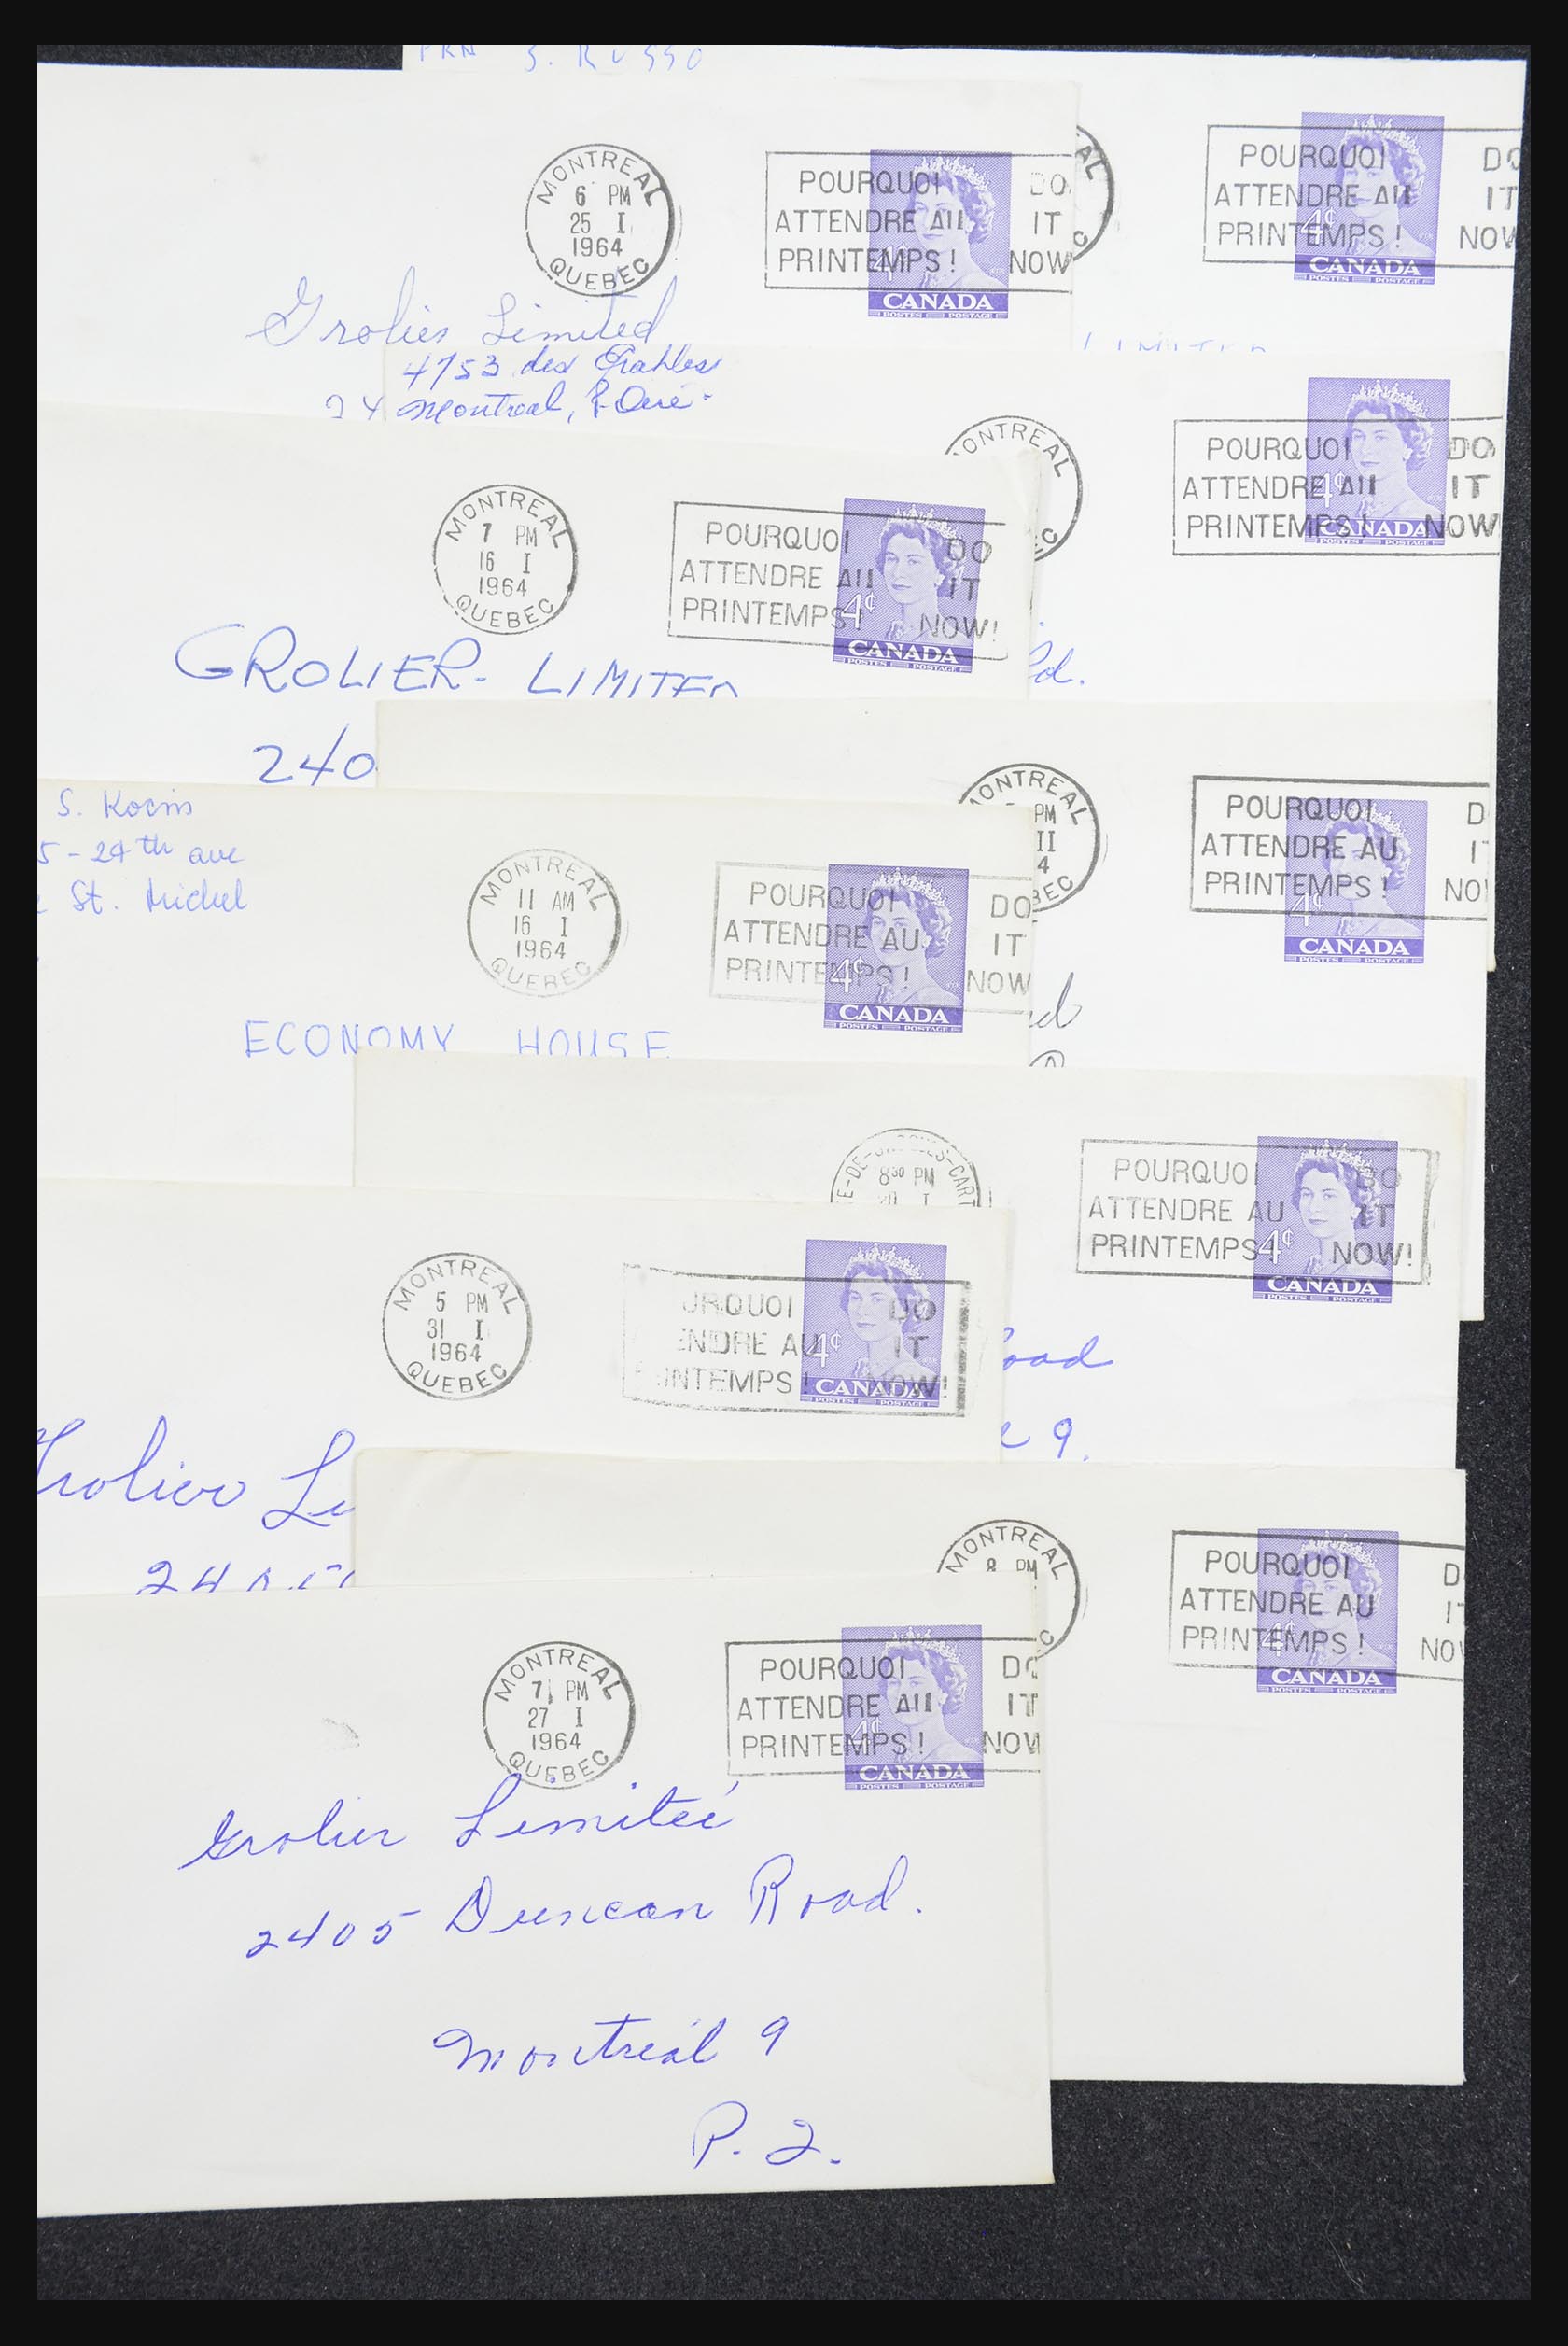 S. RUSSO
MONTREAL
6 PM
25 I
1964
QUEBEC
POURQUOI
ATTENDRE AU
PRINTEMPS !
DO
IT
NOW
4¢
CANADA
POSTES POSTAGE
Grolier Limited
POURQUOI
ATTENDRE AU
PRINTEMPS !
DO
IT
NOW
4¢
CANADA
POSTES POSTAGE
4753 des Érables
24 Montreal, P. Que.
MONTREAL
POURQUOI
ATTENDRE AU
PRINTEMPS !
DO
IT
NOW
4¢
CANADA
POSTES POSTAGE
Ltd.
MONTREAL
7 PM
16 I
1964
QUEBEC
POURQUOI
ATTENDRE AU
PRINTEMPS !
DO
IT
NOW!
4¢
CANADA
POSTES POSTAGE
GROLIER- LIMITED
240
MONTREAL
PM
II
4
BEC
POURQUOI
ATTENDRE AU
PRINTEMPS !
D
I
NO
4¢
CANADA
POSTES POSTAGE
S. Kocin
5-24th ave
St. Michel
MONTREAL
11 AM
16 I
1964
QUEBEC
POURQUOI
ATTENDRE AU
PRINTEMPS !
DO
IT
NOW
4¢
CANADA
POSTES POSTAGE
ECONOMY HOUSE
8³⁰ PM
20 I
POURQUOI
ATTENDRE AU
PRINTEMPS !
DO
IT
NOW!
4¢
CANADA
POSTES POSTAGE
oad
9.
MONTREAL
5 PM
31 I
1964
QUEBEC
URQUOI
ENDRE AU
INTEMPS !
DO
IT
NOW!
4¢
CANADA
POSTES POSTAGE
Grolier Li
240
MONTREAL
8 PM
POURQUOI
ATTENDRE AU
PRINTEMPS !
D
IT
NOW
4¢
CANADA
POSTES POSTAGE
MONTREAL
7 PM
27 I
1964
QUEBEC
POURQUOI
ATTENDRE AU
PRINTEMPS !
DO
IT
NOW
4¢
CANADA
POSTES POSTAGE
Grolier Limiteé
2405 Duncan Road.
Montreal 9
P. Q.